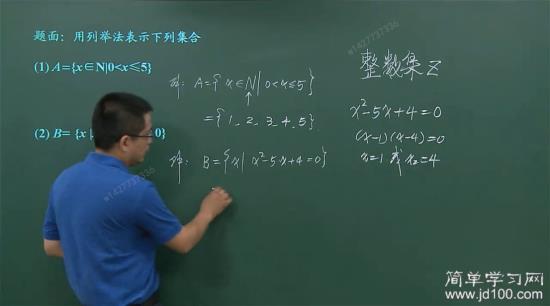 题面：用列举法表示下列集合
(1) A={x∈N|0<x≤5}
解：A={x∈N|0<x≤5}
={1,2,3,4,5}
(2) B={x| 0}
解：B={x|x²-5x+4=0}
整数集Z
x²-5x+4=0
(x-1)(x-4)=0
x=1 或 x₂=4
简单学习网
www.jd100.com